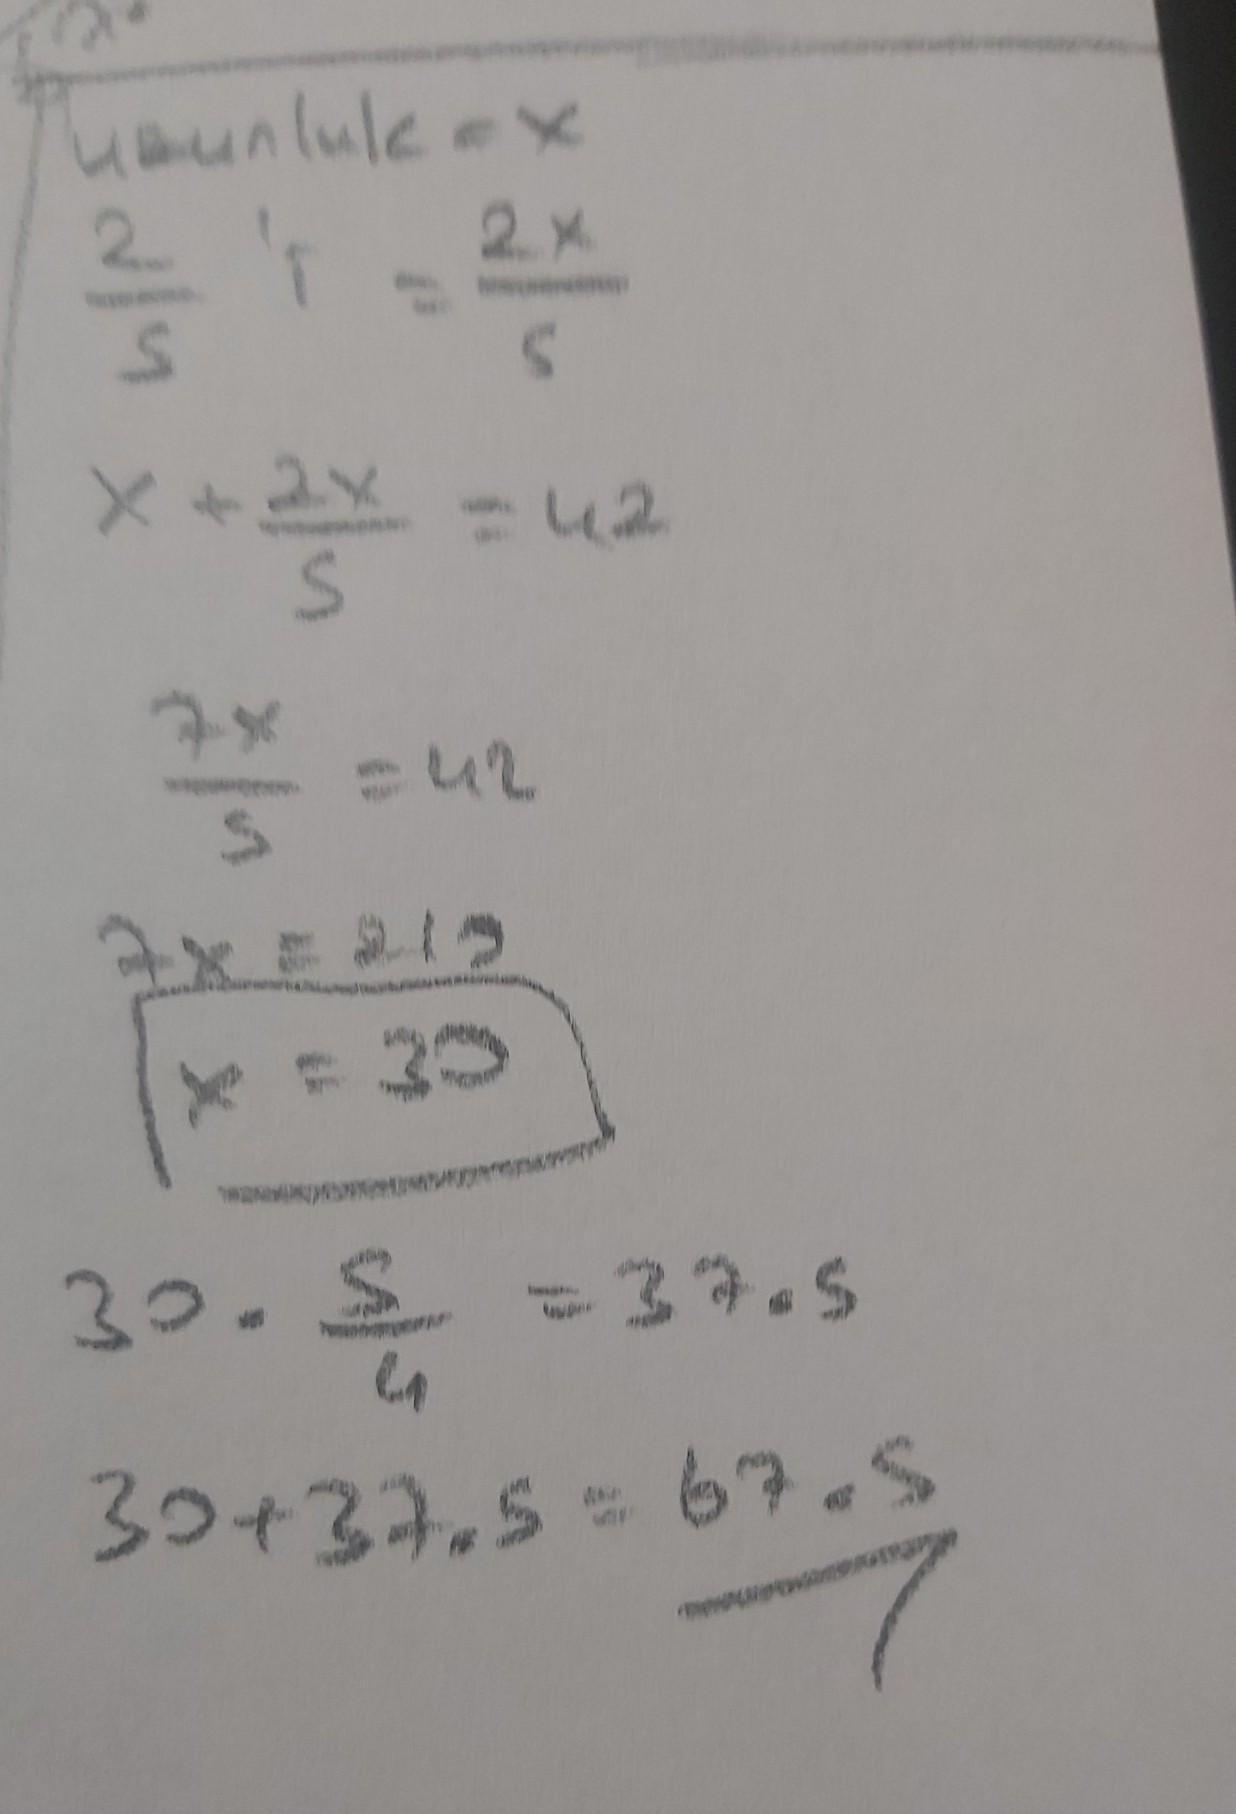 uzunluk = x
2/5 'i = 2x/5
x + 2x/5 = 42
7x/5 = 42
7x = 210
x = 30
30 . 5/4 = 37.5
30+37.5 = 67.5